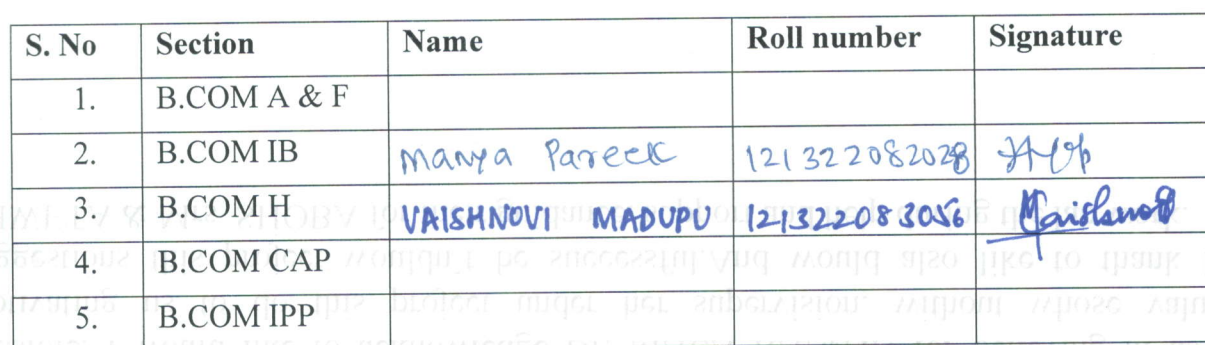 S. No Section Name Roll number Signature
1. B.COM A & F
2. B.COM IB Manya Pareek 121322082028
3. B.COM H VAISHNOVI MADUPU 121322083056
4. B.COM CAP
5. B.COM IPP